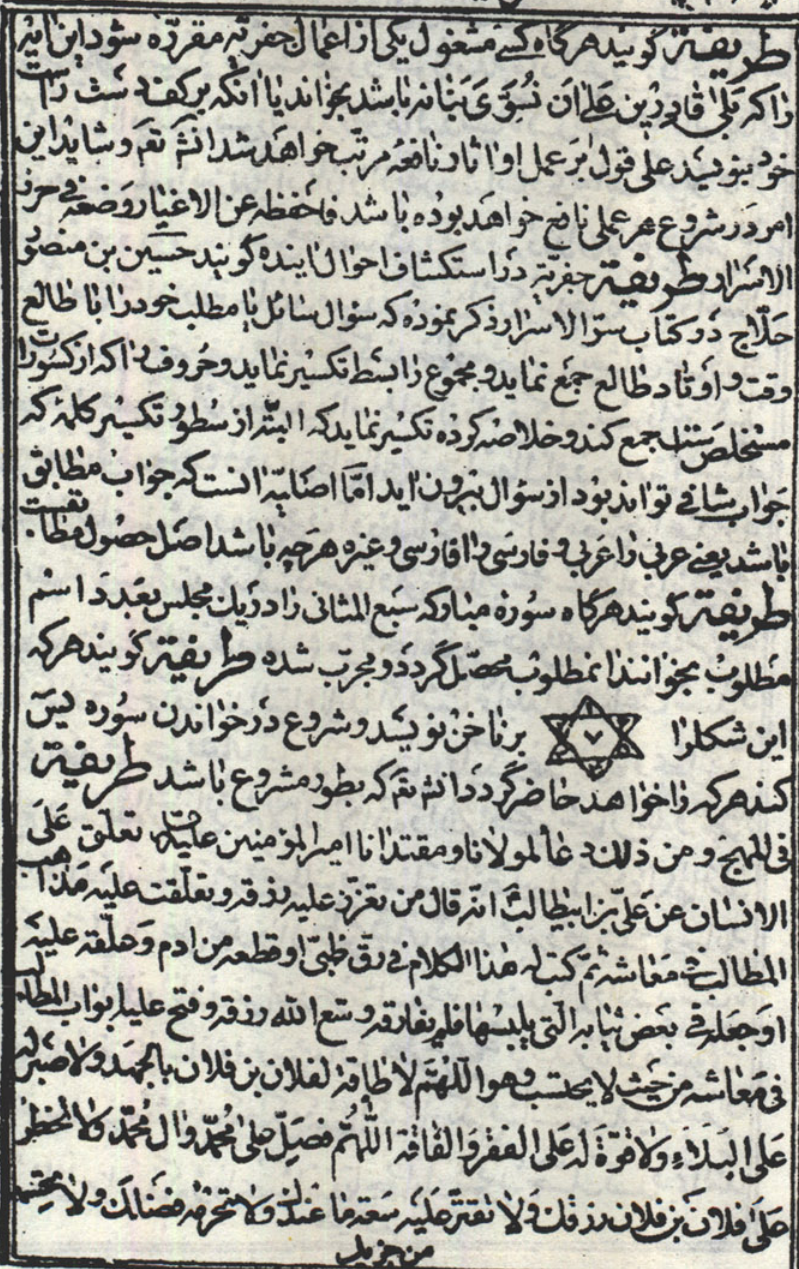 طریقة گویند هرگاه کسے مشغول یکی از اعمال جفریّه مقرّره شود این آیه
را که بَلٰی قادِرِینَ عَلٰی اَن نُسَوِّیَ بَنانَه باشد بخواند یا انکه بر کف دست راست
خود بنویسد علی قول بر عمل او اثار نافعه مرتّب خواهد شد انشٓ تعَ و شاید این
امر در شروع هر عملی نافع خواهد بوده باشد فاحفظه عن الاغیار وضعه فی حرز
الاسرار طریقة جفریّه در استکشاف احوال اینده گویند حسین بن منصور
حلّاج در کتاب سرّ الاسرار ذکر نموده که سؤال سائل یا مطلب خود را با طالع
وقت و اوتاد طالع جمع نماید و مجموع را بسط تکسیر نماید و حروف را که از کسورات
مستخلص ستـ جمع کند و خلاصه کرده تکسیر نماید که البتّه از سطور تکسیر کلمهٔ که
جواب شافے تواند بود از سؤال بیرون اید امّا اصابیّه انست که جواب مطابق
باشد یعنے عربی را عربی و فارسی را فارسی و غیره هرچه باشد اصل حصول مطابقت
طریقة گویند هرگاه سوره مبارکه سبع المثانی را در یک مجلس بعدد اسم
مطلوب بخوانند انمطلوب محصّل گردد و مجرّب شده طریقة گویند هرکه
این شکلرا ٧ بر ناخن نویسد و شروع در خواندن سوره یٰسٓ
کند هرکه را خواهد حاضر گردد انشٓ تعَ که بطور مشروع باشد طریقة
فی المهج و من ذلک دعا لمولانا و مقتدانا امیر المؤمنین علیه تعلّق علی
الانسان عن علیّ بن ابیطالبؑ انّه قال من تعزّز علیه رزقه و تعلّقت علیه مذاهب
المطالب فے معاشه ثمّ کتب له هذا الکلام فی رقّ ظبیّ او قطعه من ادم و علّقه علیه
او جعله فے بعض ثیابه الّتی یلبسها فلم یفارقه وسّع الله رزقه و فتح علیه ابواب المطالب
فی معاشه من حیث لا یحتسب و هو اللّهُمَّ لا طاقة لفلان بن فلان بالجهد ولا صبر له
علی البلاء ولا قوّة له علی الفقر والفاقة اللّهُمَّ فصلّ علی محمّد وال محمّد ولا تحظر
علی فلان بن فلان رزقک ولا تقتر علیه سعة ما عندک ولا تحرمه فضلک ولا تحسمه
من جزیل